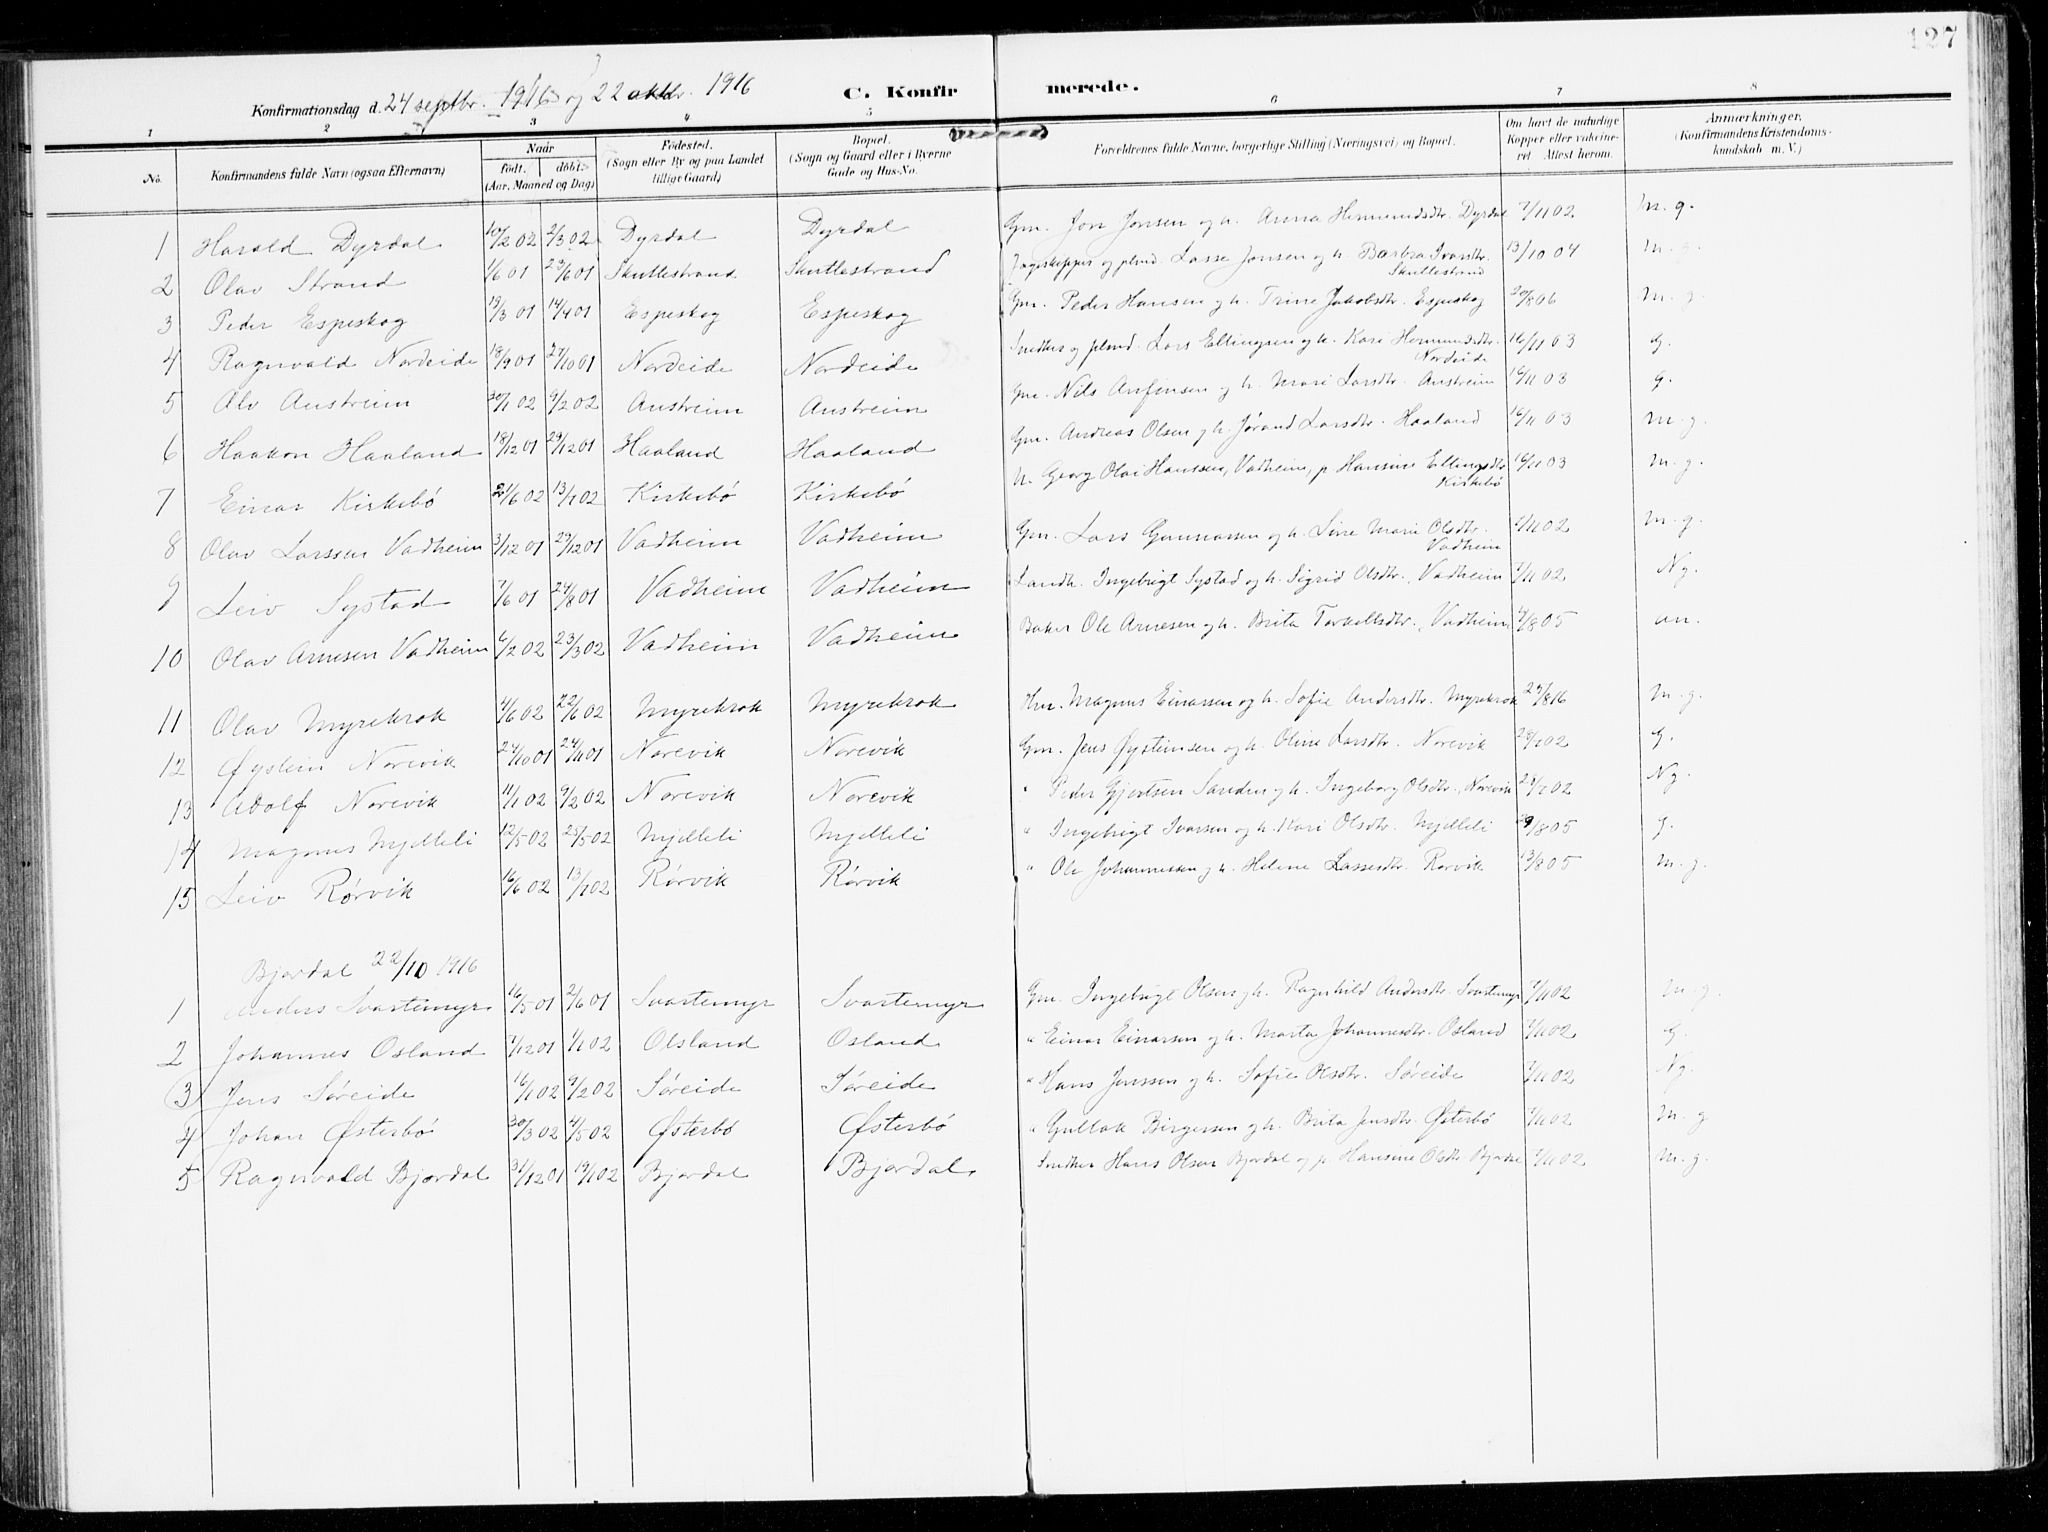 127
Konfirmationsdag d. 24 septbr. 1916 og 22 oktbr. 1916 C. Konfirmerede.
1 2 3 4 5 6 7 8
No. Konfirmandens fulde Navn (ogsaa Efternavn) Naar født. døbt. (Aar, Maaned og Dag) Fødested. (Sogn eller By og paa Landet tillige Gaard) Bopæl. (Sogn og Gaard eller i Byerne Gade og Hus-No. Forældrenes fulde Navne, borgerlige Stilling (Næringsvei) og Bopæl. Om havt de naturlige Kopper eller vakcineret. Attest herom. Anmærkninger. (Konfirmandens Kristendomskundskab m. V.)
1 Harald Dyrdal 10/2 02 2/3 02 Dyrdal Dyrdal Gm. Jon Jonsen og h. Anna Hermundsdtr. Dyrdal 7/11 02 M. g.
2 Olav Strand 1/6 01 23/6 01 Skutlestrand Skutlestrand og plmd. Lasse Jonsen og h. Barbra Ivarsdtr. Skutlestrand 13/10 04 M. g.
3 Peder Espeskog 19/3 01 14/4 01 Espeskog Espeskog Gm. Peder Hansen og h. Trine Jakobsdtr. Espeskog 20/8 06 M. g.
4 Ragnvald Nordeide 18/9 01 27/10 01 Nordeide Nordeide Snedker og plmd. Lars Ellingsen og h. Kari Hermundsdtr. Nordeide 16/11 03 g.
5 Alv Austreim 30/1 02 9/2 02 Austreim Austreim Gm. Nils Anfinsen og h. Mari Larsdtr. Austreim 16/11 03 g.
6 Haakon Haaland 18/12 01 29/12 01 Haaland Haaland Gm. Andreas Olsen og h. Jørand Larsdtr. Haaland 16/11 03 M. g.
7 Einar Kirkebö 21/6 02 13/7 02 Kirkebö Kirkebö U. Georg Olai Hanssen, Vadheim, p. Hansine Ellingsdtr. Kirkebö 16/11 03 M. g.
8 Olav Larssen Vadheim 3/12 01 29/12 01 Vadheim Vadheim Gm. Lars Gunnarssen og h. Line Marie Olsdtr. Vadheim 7/11 02 M. g.
9 Leiv Systad 7/6 01 24/8 01 Vadheim Vadheim Landh. Ingebrigt Systad og h. Sigrid Olsdtr., Vadheim 7/11 02 Ng.
10 Olav Arnesen Vadheim 6/2 02 23/3 02 Vadheim Vadheim Baker Ole Arnesen og h. Brita Torkellsdtr., Vadheim 4/8 05 an.
11 Olav Myrekrok 4/6 02 22/6 02 Myrekrok Myrekrok Hm. Magnus Einarssen og h. Sofie Andersdtr. Myrekrok 27/8 16 M. g.
12 Øystein Norevik 24/10 01 24/11 01 Norevik Norevik Gm. Jens Øysteinsen og h. Oline Larsdtr. Norevik 28/7 02 g.
13 Adolf Norevik 11/1 02 9/2 02 Norevik Norevik " Peder Gjertsen Sanden og h. Ingeborg Olsdtr., Norevik 28/7 02 Ng.
14 Magnus Mjelleli 12/5 02 25/5 02 Mjelleli Mjelleli " Ingebrigt Ivarsen og h. Kari Olsdtr. Mjelleli 29/8 05 g.
15 Leiv Rørvik 16/6 02 13/7 02 Rørvik Rørvik " Ole Johannessen og h. Helene Lassesdtr. Rørvik 13/8 05 M. g.
Bjordal 22/10 1916
1 Anders Svartemyr 16/5 01 2/6 01 Svartemyr Svartemyr Gm. Ingebrigt Olsen og h. Ragnhild Andersdtr. Svartemyr 7/11 02 M. g.
2 Johannes Osland 7/12 01 1/1 02 Olsland Osland " Einar Einarsen og h. Marta Johannesdtr. Osland 7/11 02 g.
3 Jens Søreide 16/1 02 9/2 02 Søreide Søreide " Hans Jenssen og h. Sofie Olsdtr. Søreide 7/11 02 Ng.
4 Johan Østerbö 30/3 02 4/5 02 Østerbö Østerbö " Gullak Birgersen og h. Brita Jensdtr. Østerbö 7/11 02 M. g
5 Ragnvald Bjordal 31/12 01 19/1 02 Bjordal Bjordal Snedker Hans Olsen Bjordal og p. Hansine Olsdtr. Bjordal 7/11 02 M. g.